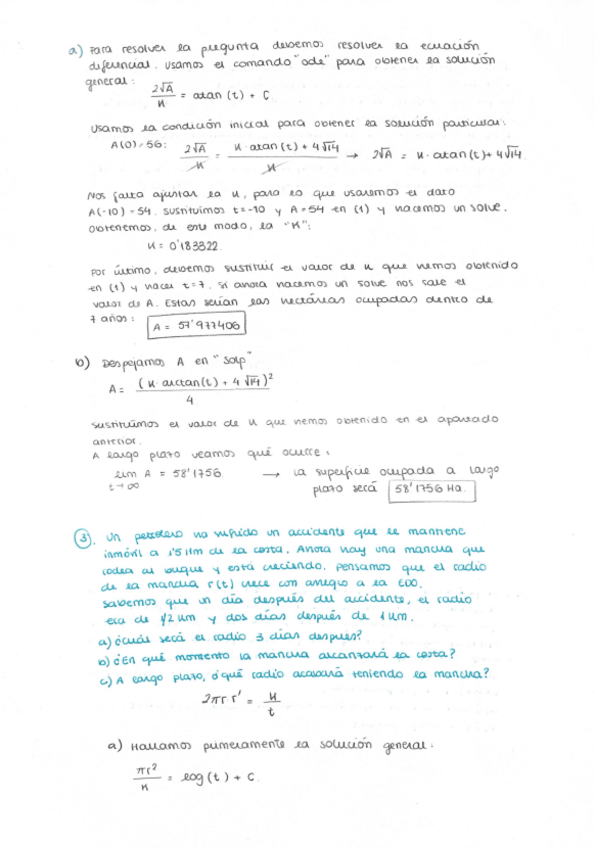 a) Para resolver la pregunta debemos resolver la ecuación
diferencial. Usamos el comando "ode" para obtener la solución
general:
2√A/K = atan(t) + C
Usamos la condición inicial para obtener la solución particular:
A(0)=56: 2√A/K = K·atan(t) + 4√14/K → 2√A = K·atan(t)+4√14
Nos falta ajustar la K, para lo que usaremos el dato
A(-10)=54. Sustituimos t=-10 y A=54 en (1) y hacemos un solve.
Obtenemos, de este modo, la "K":
K = 0'183822.
Por último, debemos sustituir el valor de K que hemos obtenido
en (1) y hacer t=7. Si ahora hacemos un solve nos sale el
valor de A. Estas serían las hectáreas ocupadas dentro de
7 años: A = 57'977406
b) Despejamos A en "solp"
A = (K·arctan(t) + 4√14)²/4
Sustituimos el valor de K que hemos obtenido en el apartado
anterior.
A largo plazo veamos qué ocurre:
lim A = 58'1756. → La superficie ocupada a largo
t→∞ plazo será 58'1756 Ha.
3. Un petrolero ha sufrido un accidente que se mantiene
inmóvil a 1'5 Km de la costa. Ahora hay una mancha que
rodea al buque y está creciendo. Pensamos que el radio
de la mancha r(t) crece con arreglo a la EDO.
Sabemos que un día después del accidente, el radio
era de 1/2 Km y dos días después de 1 Km.
a) ¿Cuál será el radio 3 días después?
b) ¿En qué momento la mancha alcanzará la costa?
c) A largo plazo, ¿qué radio acabará teniendo la mancha?
2πr r' = K/t
a) Hallamos primeramente la solución general:
πr²/K = log(t) + C.